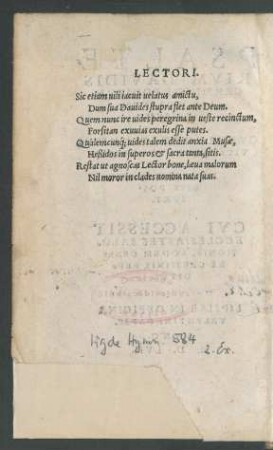 LECTORI.
Sic etiam uili iacuit uelatus amictu,
Dum sua Dauides stupra flet ante Deum.
Quem nunc ire uides peregrina in ueste recinctum,
Forsitan exuuias exulis esse putes.
Qualemcunq; uides talem dedit anxia Musæ,
Hesūdos in superos & sacra tanta, sitis.
Restat ut agnoscas Lector bone, læua malorum
Nil moror in clades nomina nata suas.
Hymn. 584
2. Ex.